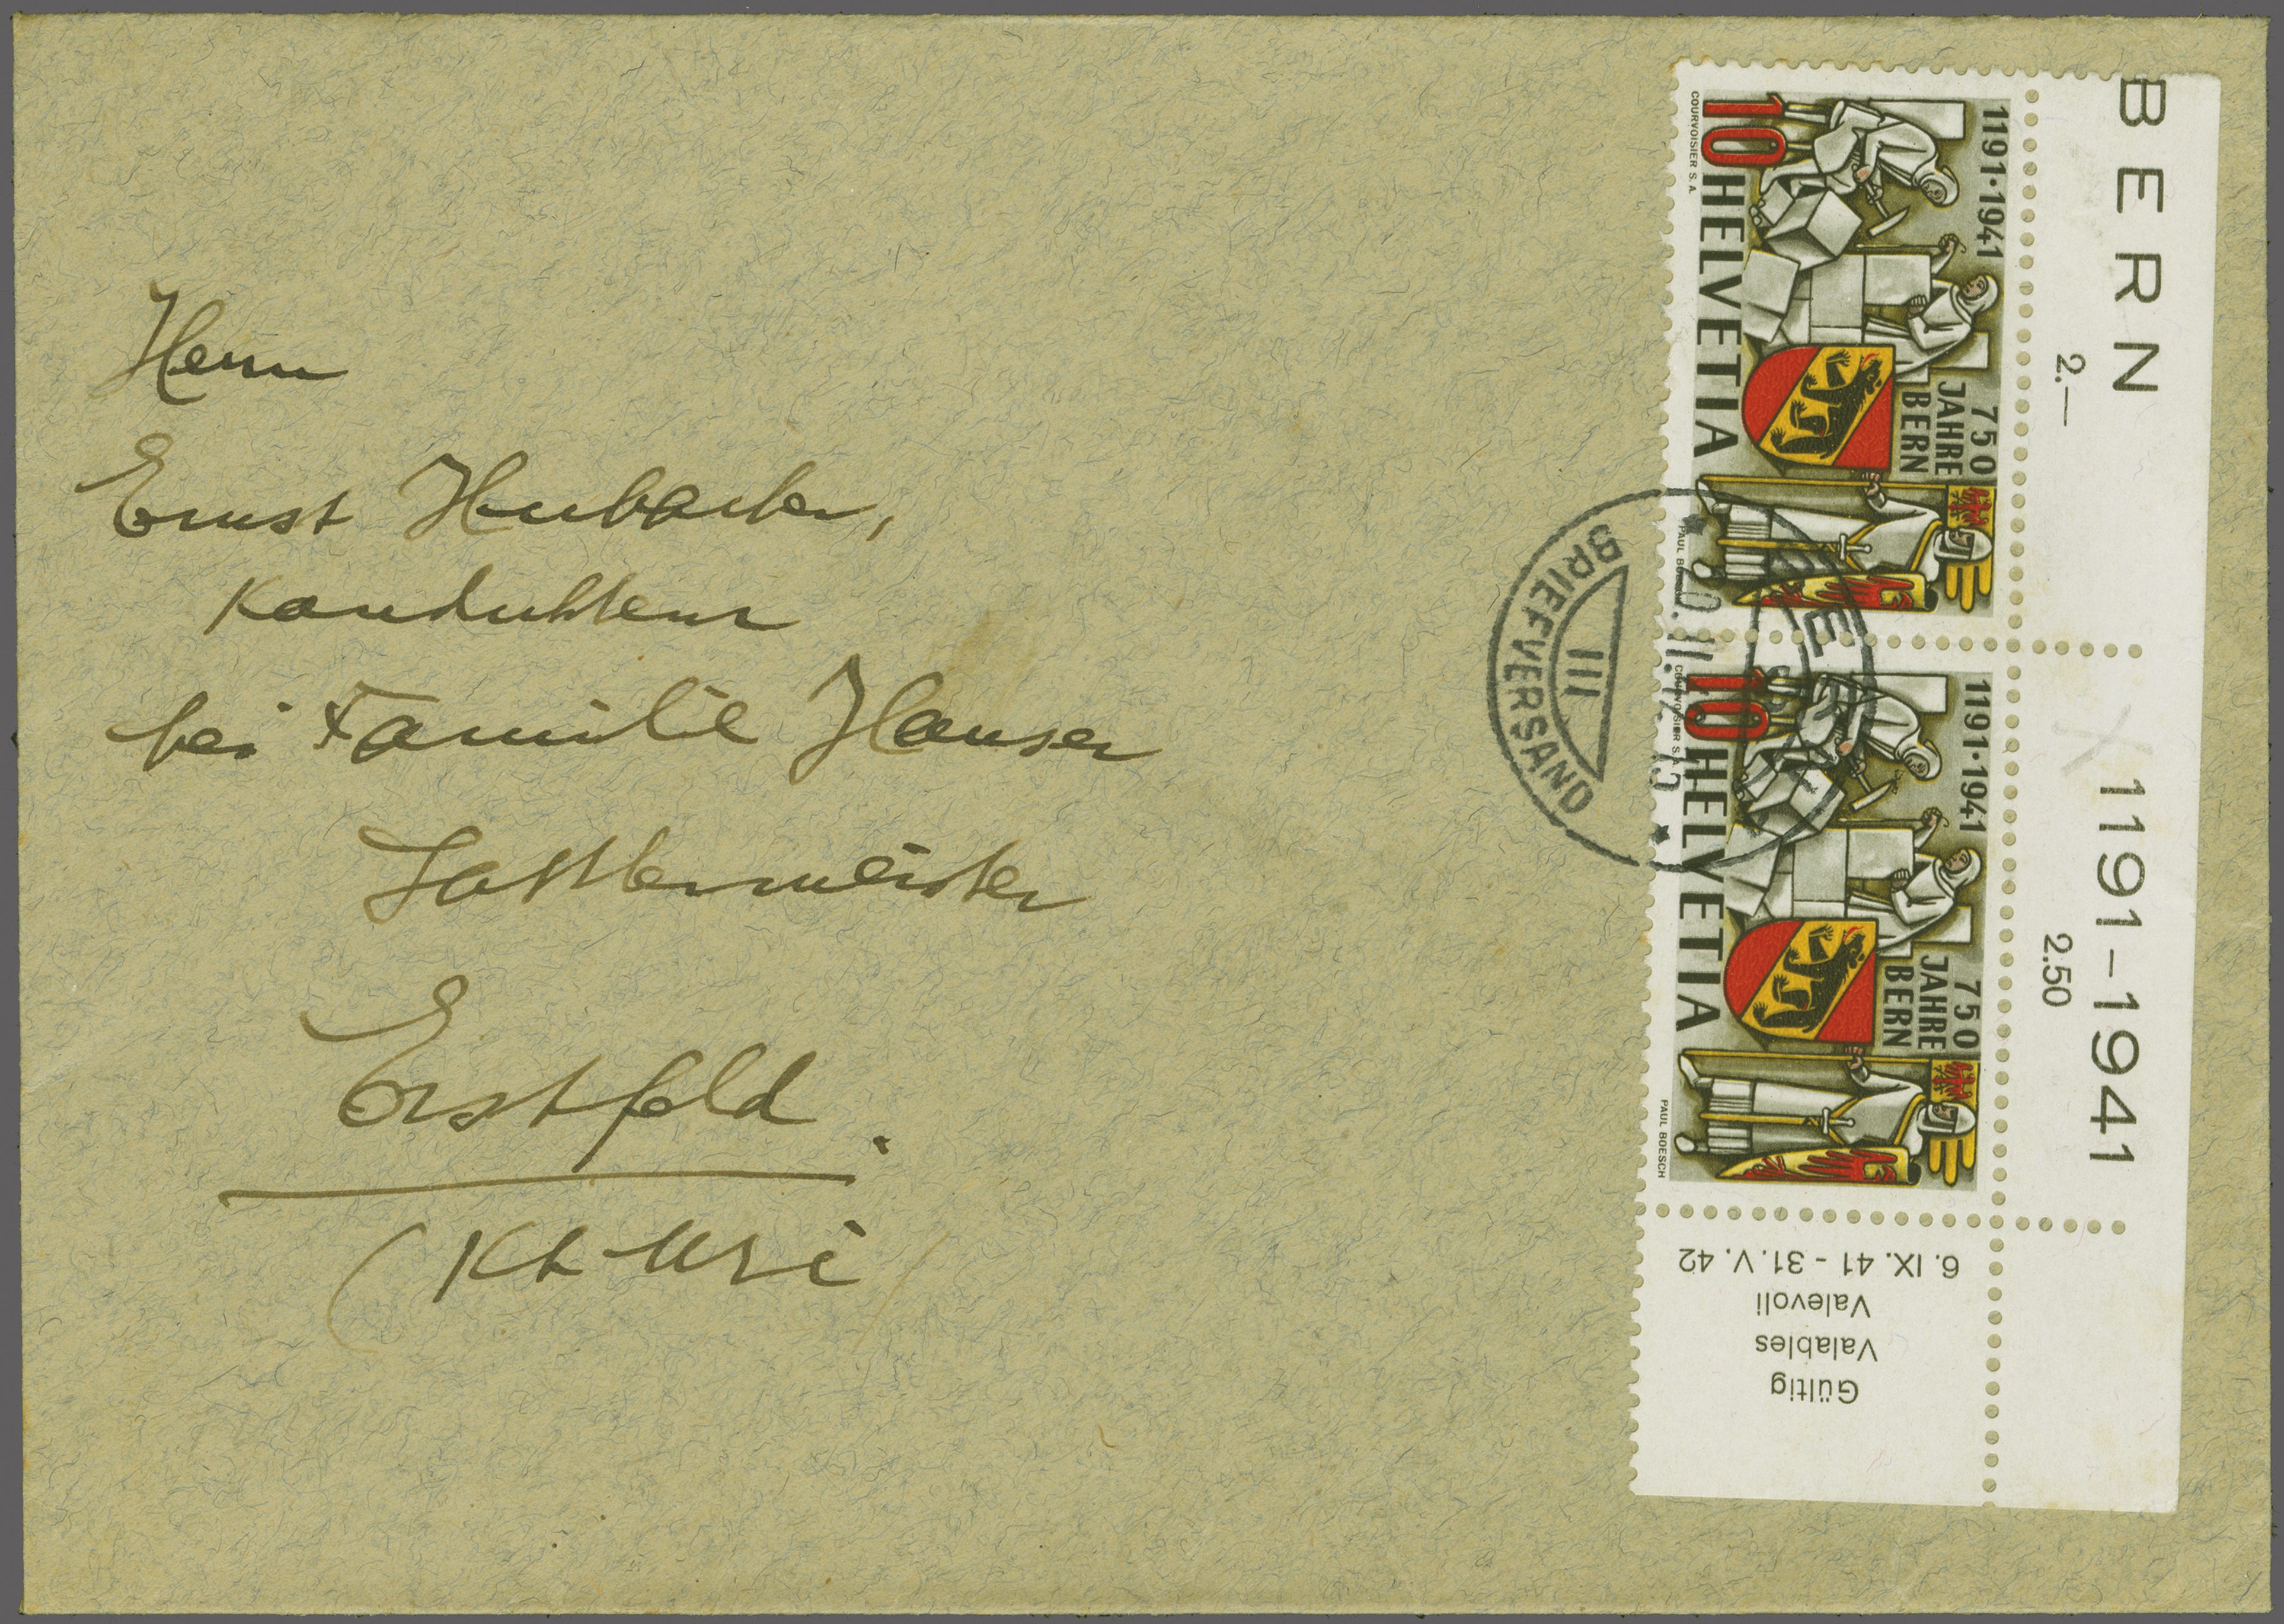 Herrn
Ernst Hubacher,
Kondukteur
bei Familie Hauser
Sattlermeister
Erstfeld.
(Kt Uri)
BERN
2.—
1191-1941
2.50
1191·1941
750
JAHRE
BERN
10 HELVETIA
COURVOISIER S.A.
1191·1941
750
JAHRE
BERN
10 HELVETIA
COURVOISIER S.A.
PAUL BOESCH
BRIEFVERSAND
III
Gültig
Valables
Valevoli
6. IX. 41 - 31. V. 42